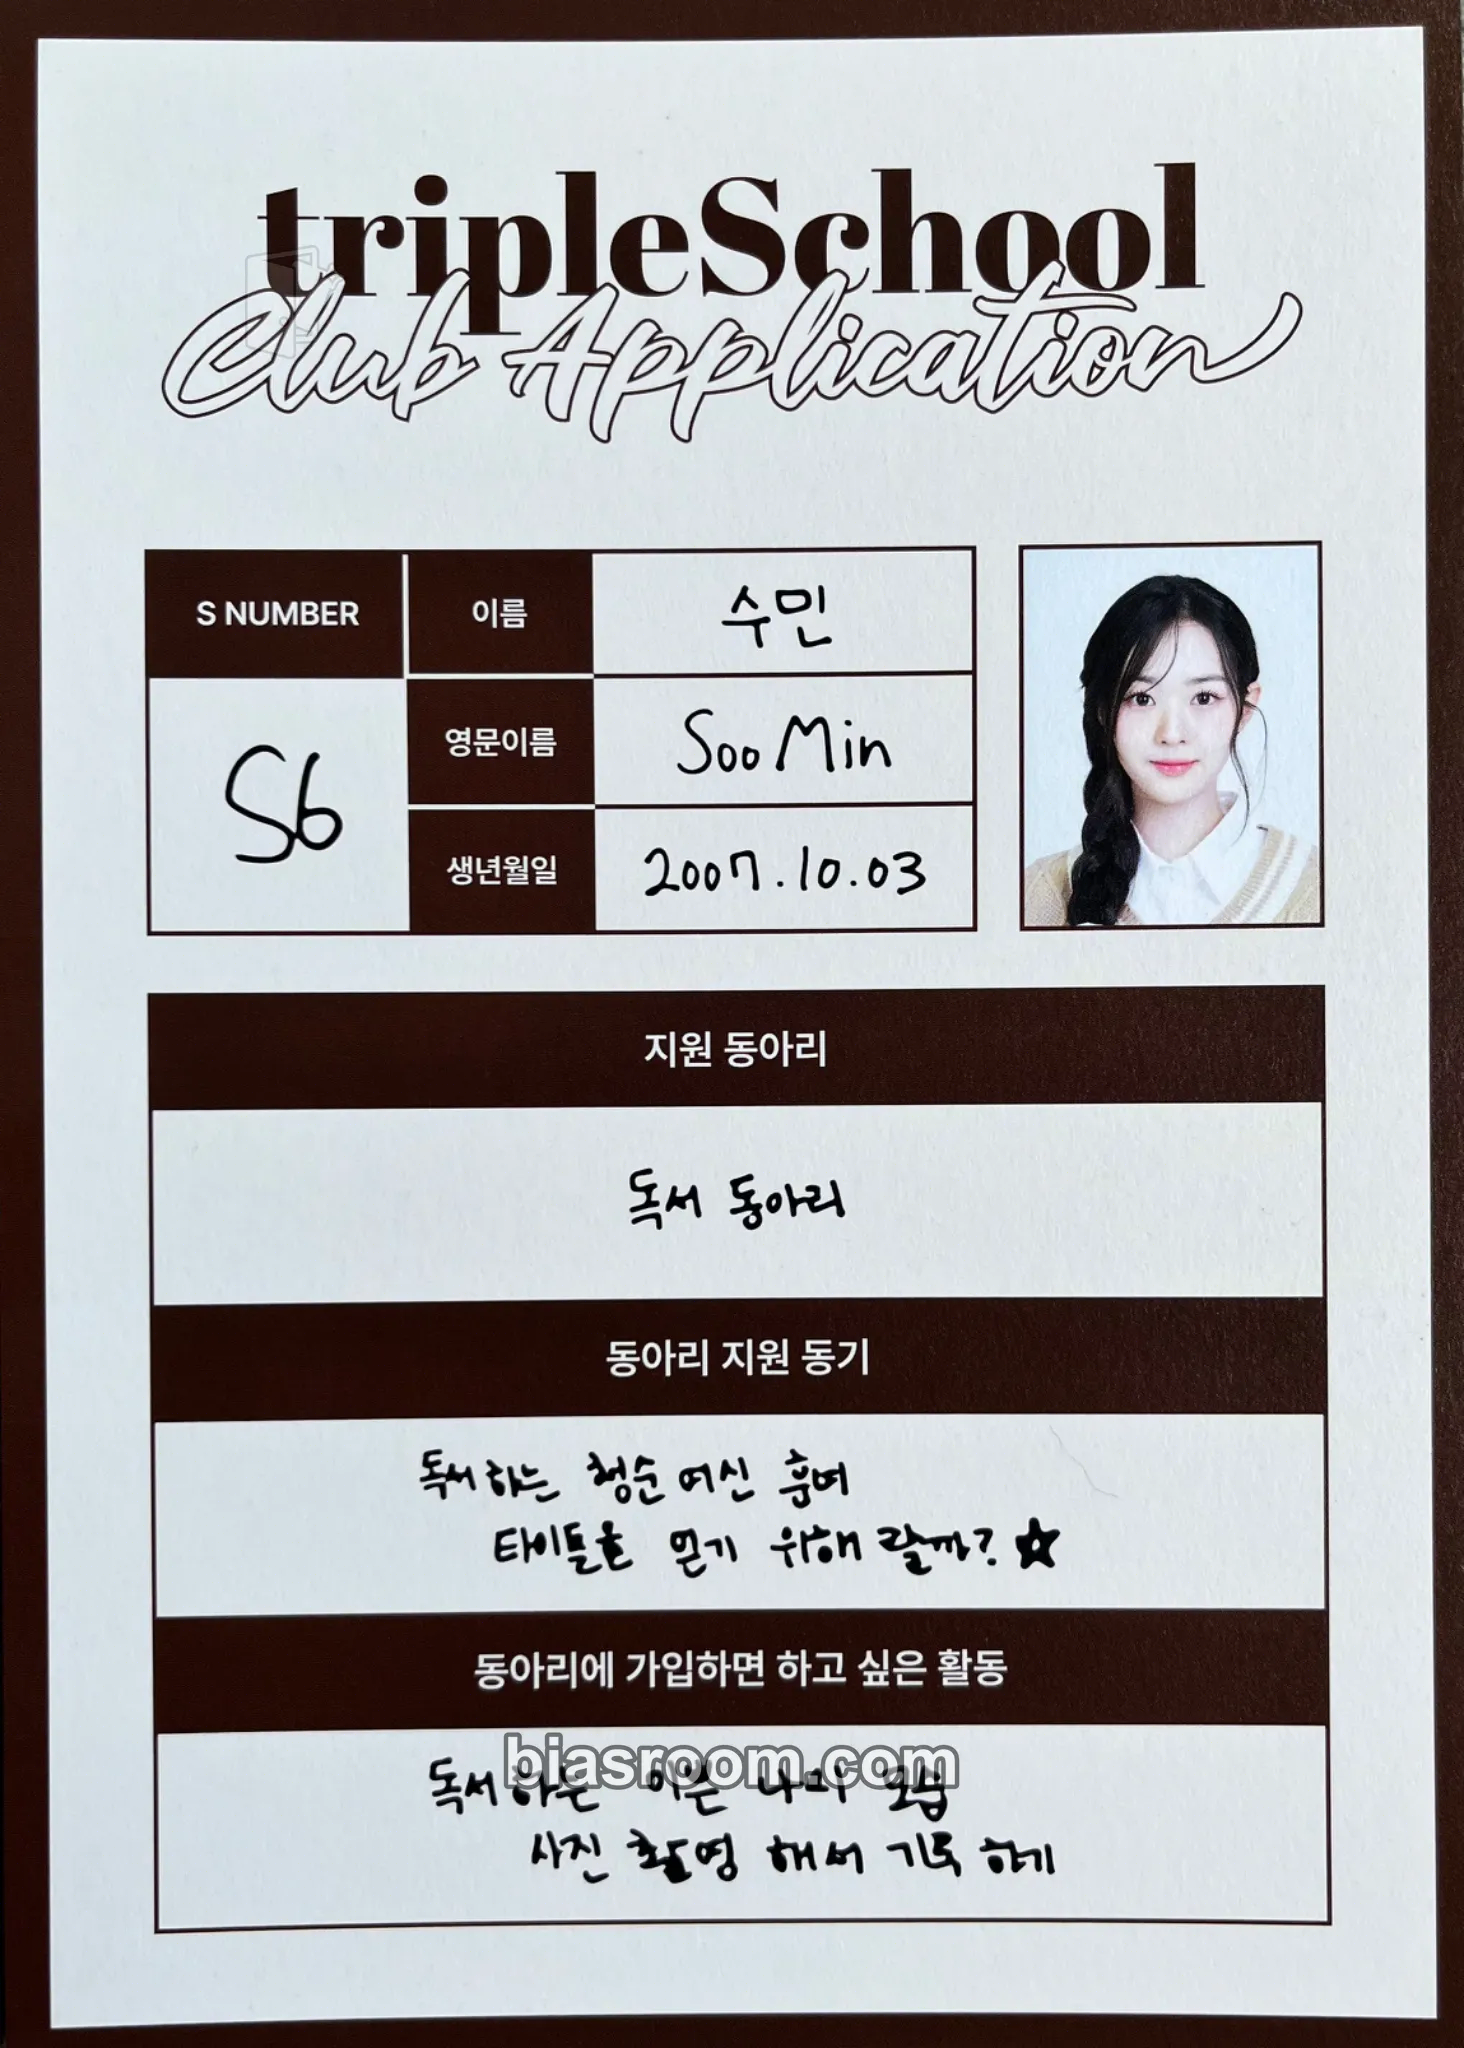 tripleSchool
Club Application
S NUMBER
S6
이름
수민
영문이름
SooMin
생년월일
2007.10.03
지원 동아리
독서 동아리
동아리 지원 동기
독서하는 청순 여신 훈녀
타이틀을 얻기 위해 랄까? ☆
동아리에 가입하면 하고 싶은 활동
biasroom.com
독서하는 이쁜 나의 모습
사진 촬영 해서 기록 하기